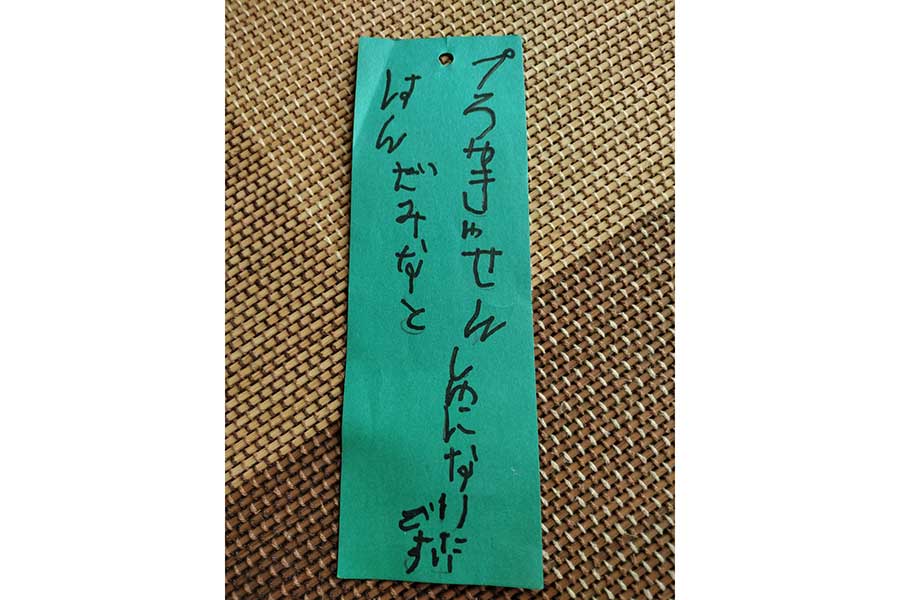 プろやきゅせんしゅになりたい
です
はんだみなと